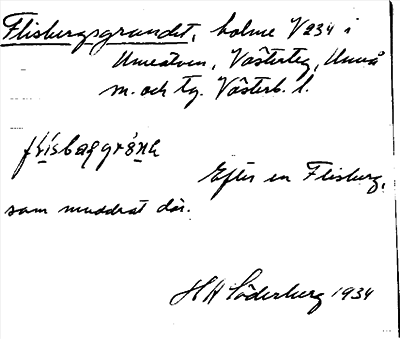 Flisbergsgrundet, holme V 234 i
Umeälven, Västerteg, Umeå
m. och tg. Västerb. l.
Efter en Flisberg,
som muddrat där.
H H Söderberg 1934